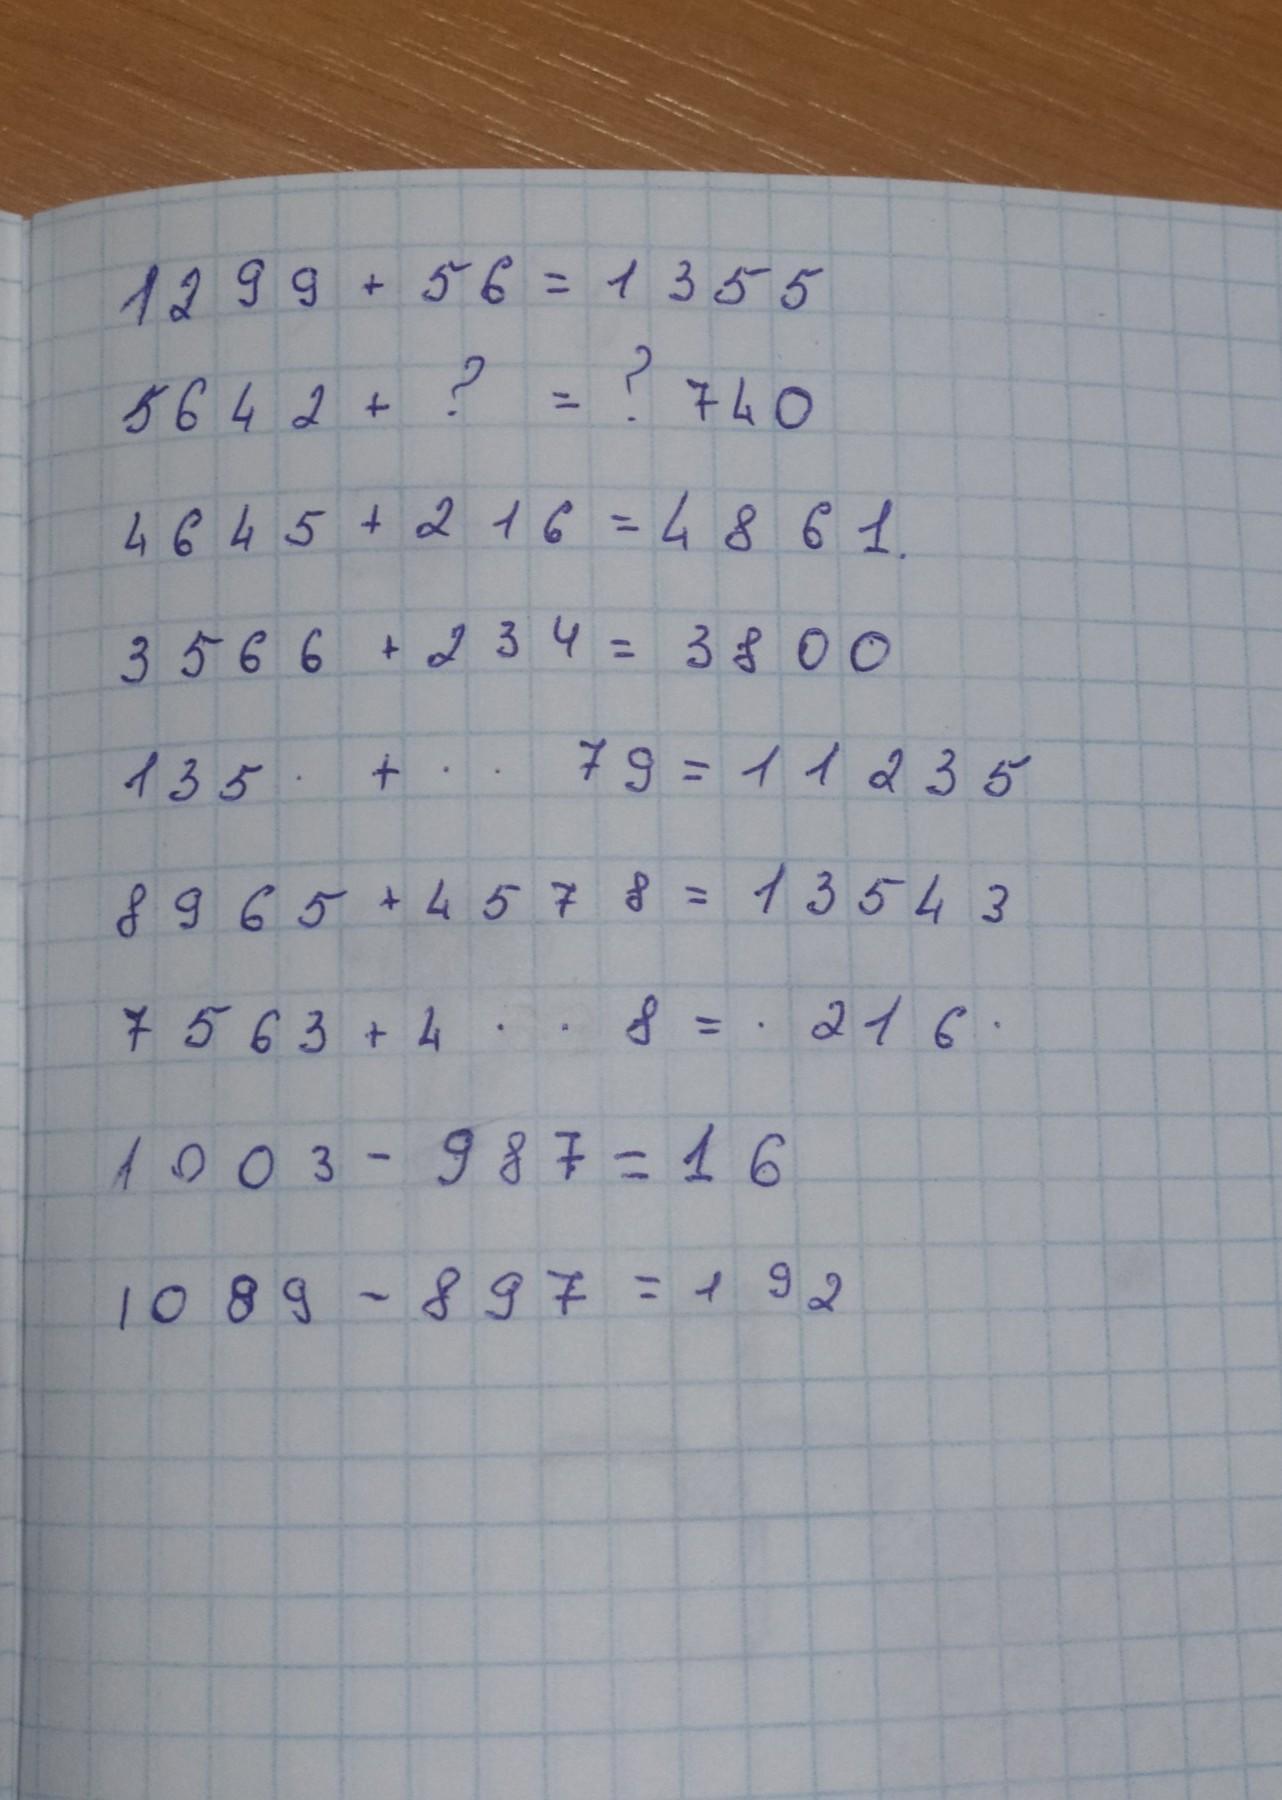 1299 + 56 = 1355
5642 + ? = ? 740
4645 + 216 = 4861.
3566 + 234 = 3800
135 . + . . 79 = 11235
8965 + 4578 = 13543
7563 + 4 . . 8 = . 216 .
1003 - 987 = 16
1089 - 897 = 192